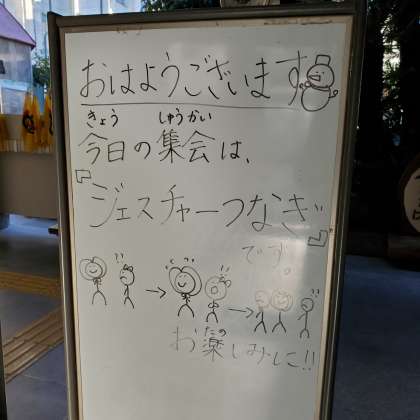 おはようございます
きょう しゅうかい
今日の集会は、
『ジェスチャーつなぎ』
です。
たの
お楽しみに!!